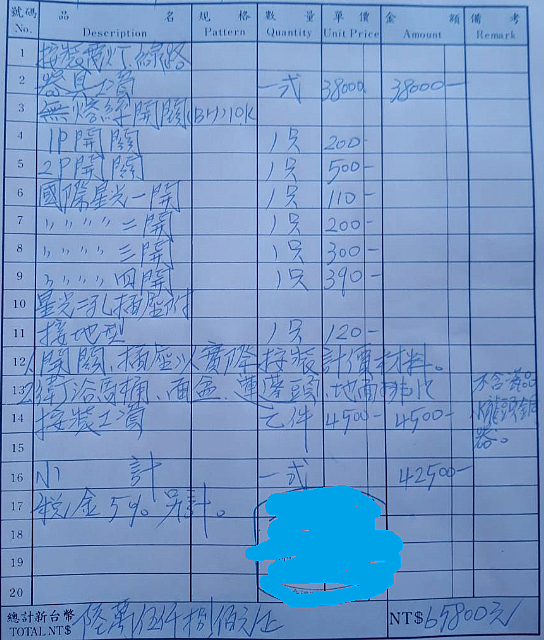 號碼 品名 規格 數量 單價 金額 備考
No. Description Pattern Quantity Unit Price Amount Remark
1 接裝電灯.線路
2 器具工資 一式 38000 38000-
3 無熔絲開關(BH)10K
4 1P開關 1只 200-
5 2P開關 1只 500-
6 國際星光一開 1只 110-
7 〃〃〃〃二開 1只 200-
8 〃〃〃〃三開 1只 300-
9 〃〃〃〃四開 1只 390-
10 星光二孔插座附
11 接地型 1只 120-
12 1(開關、插座)以實際接裝計價材料。
13 2衛浴馬桶、面盆、蓮蓬頭、地面排水 不含
14 接裝工資 乙件 4500- 4500- 水龍頭銅
15 器。
16 小計 一式 42500-
17 稅金5%另計。
18
19
20
總計新台幣 陸萬伍仟捌佰元正 NT$65800元
TOTAL NT$